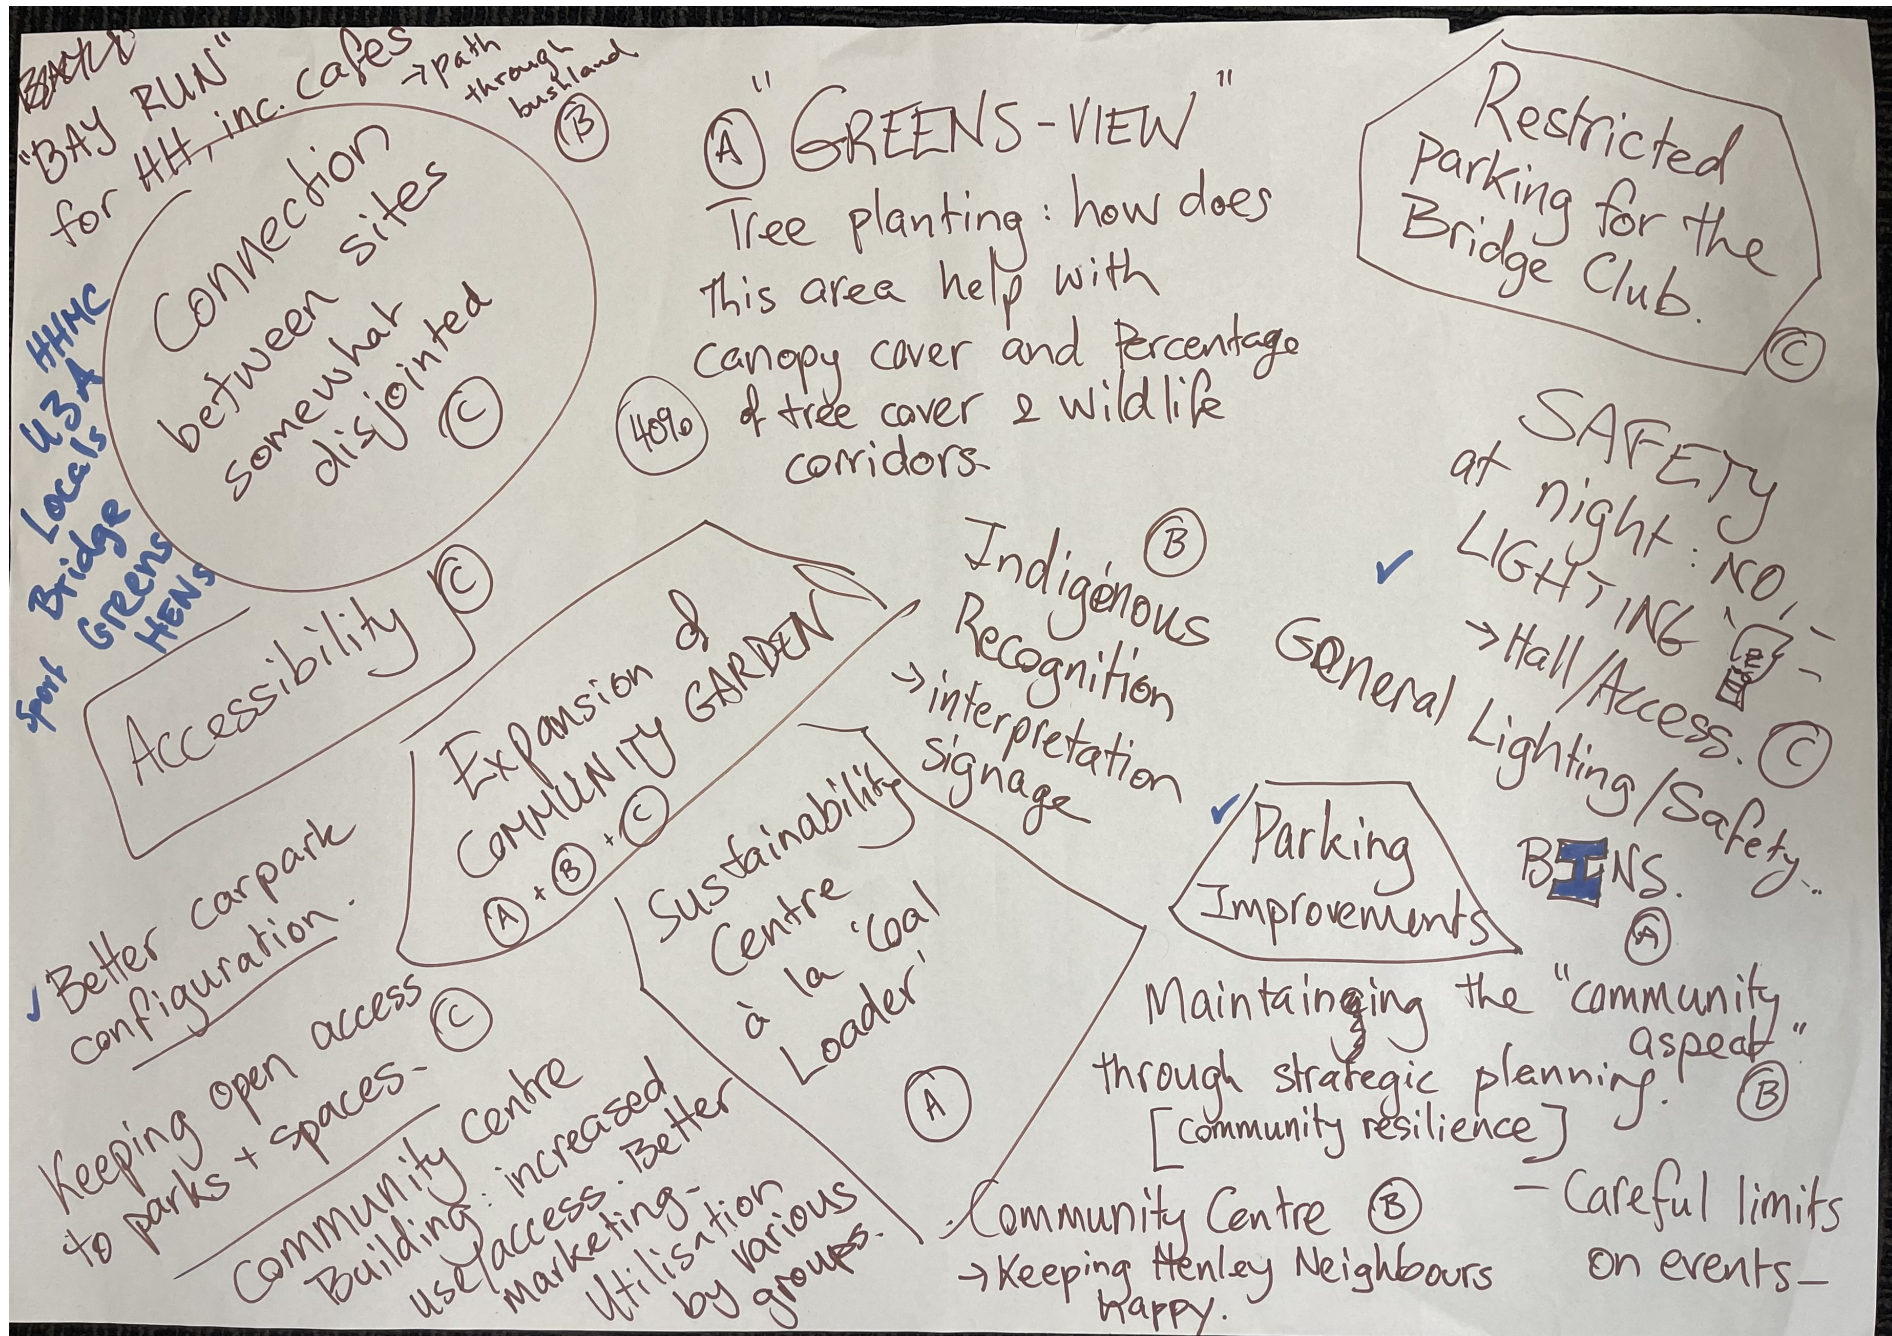 "BAY RUN"
for HH, inc. cafes
→ path
through
bushland
B
Connection
between sites
somewhat
disjointed
C
HHMC
U3A
Locals
Bridge
Greens
HENs
Sport
A "GREENS-VIEW"
Tree planting: how does
this area help with
canopy cover and Percentage
of tree cover & wildlife
corridors.
40%
Restricted
parking for the
Bridge Club.
C
SAFETY
at night: NO
LIGHTING
→ Hall/Access.
C
✓ General Lighting/Safety...
Accessibility
C
Expansion of
COMMUNITY GARDEN
A + B + C
Indigenous
B
Recognition
→ interpretation
signage
✓ Parking
Improvements
BINS.
A
✓ Better carpark
configuration.
Keeping open access
to parks + spaces-
C
Sustainability
Centre
à la 'Coal
Loader'
A
Maintaining the "community
aspect"
through strategic planning.
B
[community resilience]
Community Centre
Building: increased
use/access. Better
marketing-
Utilisation
by various
groups.
Community Centre B
→ Keeping Henley Neighbours
happy.
- Careful limits
on events-